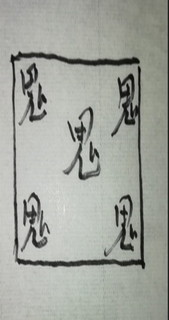 鬼 鬼
鬼
鬼 鬼